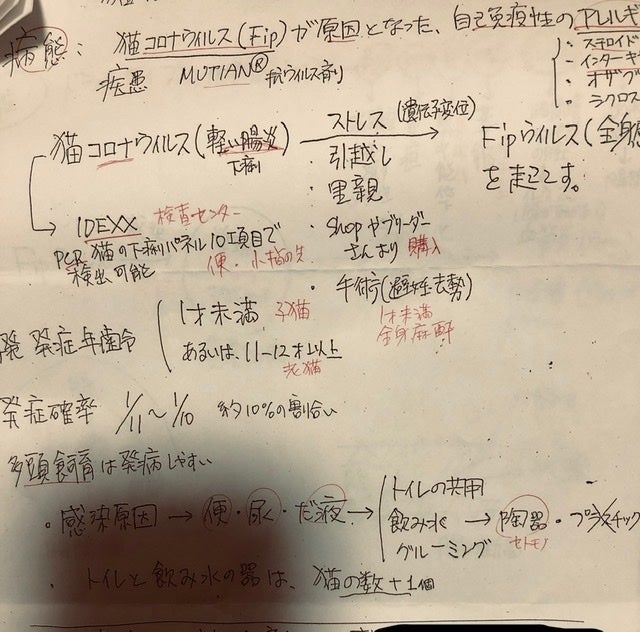 病態: 猫コロナウィルス(Fip)が原因となった、自己免疫性のアレルギ
疾患 MUTIAN® 抗ウィルス剤
・ステロイド
・インターキ
・オザグ
・シクロス
猫コロナウィルス(軽い腸炎) ストレス (遺伝子変位) Fipウィルス(全身
下痢
・引越し を起こす。
・里親
IDEXX 検査センター
・shopやブリーダー
さんより 購入
PCR 猫の下痢パネル10項目で
検出可能 便・小指の先
・手術(避妊去勢)
1才未満
全身麻酔
発症年齢 1才未満 子猫
あるいは、11〜12才以上
老猫
発症確率 1/11〜1/10 約10%の割合い
多頭飼育は発病しやすい
・感染原因→便・尿・だ液→トイレの共用
飲み水→陶器・プラスチック
セトモノ
グルーミング
・トイレと飲み水の器は、猫の数+1個